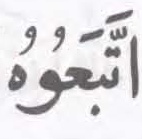 اتَّبَعُوهُ